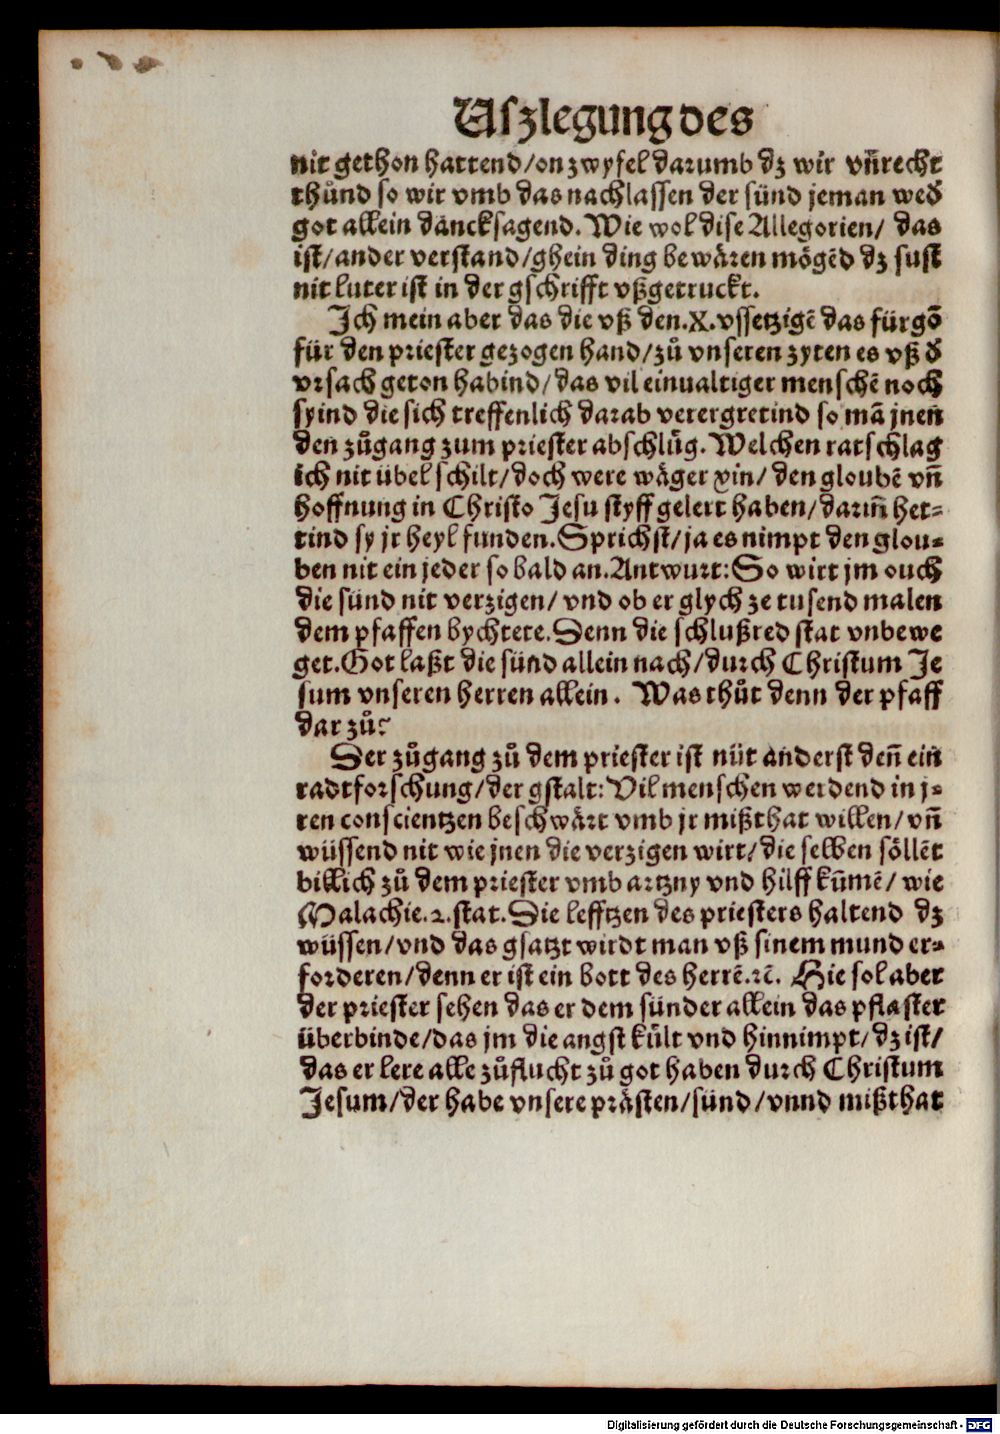 Uszlegung des
nit gethon hattend/on zwyfel darumb dz wir vn̄recht
thůnd so wir vmb das nachlassen der sünd jeman wed̛
got allein dancksagend. Wie wol dise Allegorien/ das
ist/ander verstand/ghein ding bewären mögẽd dz sust
nit luter ist in der gschrifft vßgetruckt.
Ich mein aber das die vß den.X.vssetzigẽ das fürgõ
für den priester gezogen hand/zů vnseren zyten es vß d̛
vrsach geton habind/das vil einualtiger menschẽ noch
syind die sich treffenlich darab verergretind so mã jnen
den zůgang zum priester abschlůg. Welchen ratschlag
ich nit übel schilt/doch were wäger xin/ den gloubẽ vn̄
hoffnung in Christo Jesu styff gelert haben/darin̄ het⸗
tind sy jr heyl funden. Sprichst/ja es nimpt den glou⸗
ben nit ein jeder so bald an. Antwurt: So wirt jm ouch
die sünd nit verzigen/ vnd ob er glych ze tusend malen
dem pfaffen bychtete. Denn die schlußred stat vnbewe
get. Got laßt die sünd allein nach/durch Christum Je
sum vnseren herren allein. Was thůt denn der pfaff
dar zů?
Der zůgang zů dem priester ist nüt anderst den̄ ein
radtforschung/der gstalt: Vil menschen werdend in j⸗
ren conscientzen beschwärt vmb jr mißthat willen/ vn̄
wüssend nit wie jnen die verzigen wirt/die selben söllẽt
billich zů dem priester vmb artzny vnd hilff kum̄ẽ/ wie
Malachie.2.stat. Die lefftzen des priesters haltend dz
wüssen/vnd das gsatzt wirdt man vß sinem mund er⸗
forderen/denn er ist ein bott des herrẽ.ꝛc̃. Hie sol aber
der priester sehen das er dem sünder allein das pflaster
überbinde/das jm die angst kült vnd hinnimpt/dz ist/
das er lere alle zůflucht zů got haben durch Christum
Jesum/der habe vnsere prästen/sünd/vnnd mißthat
Digitalisierung gefördert durch die Deutsche Forschungsgemeinschaft - DFG